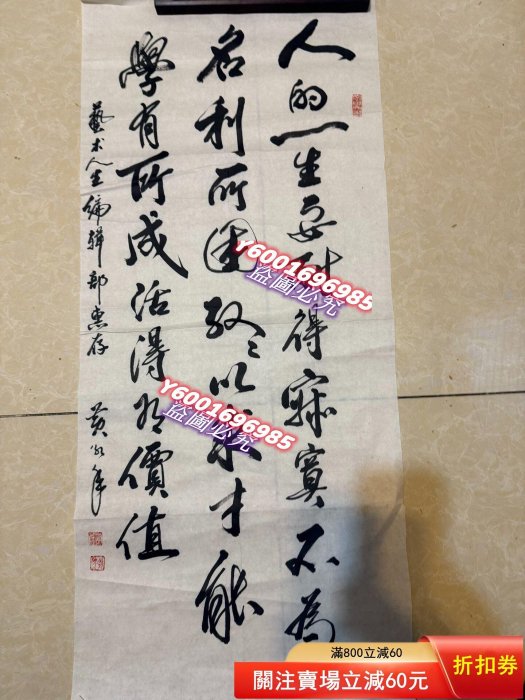 人的一生要耐得寂寞不為
名利所困孜孜以求才能
學有所成活得有價值
藝术人生编輯部惠存
黄
Y6001696985
盜圖必究
Y6001696985
盜圖必究
滿800立減60
關注賣場立減60元
折扣券